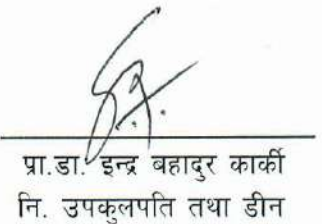 प्रा.डा. इन्द्र बहादुर कार्की
नि. उपकुलपति तथा डीन